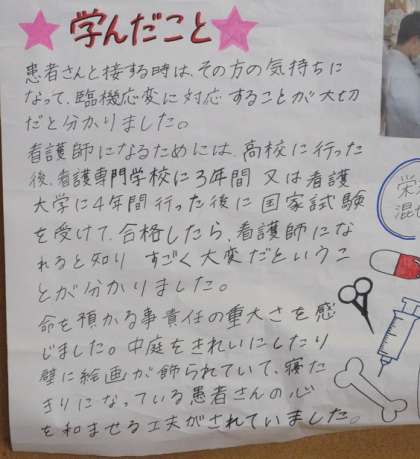 学んだこと
患者さんと接する時は、その方の気持ちに
なって、臨機応変に対応することが大切
だと分かりました。
看護師になるためには、高校に行った
後、看護専門学校に3年間 又は看護
大学に4年間行った後に国家試験
を受けて、合格したら、看護師にな
れると知り すごく大変だというこ
とが分かりました。
命を預かる事責任の重大さを感
じました。中庭をきれいにしたり
壁に絵画が飾られていて、寝た
きりになっている患者さんの心
を和ませる工夫がされていました。
栄
混